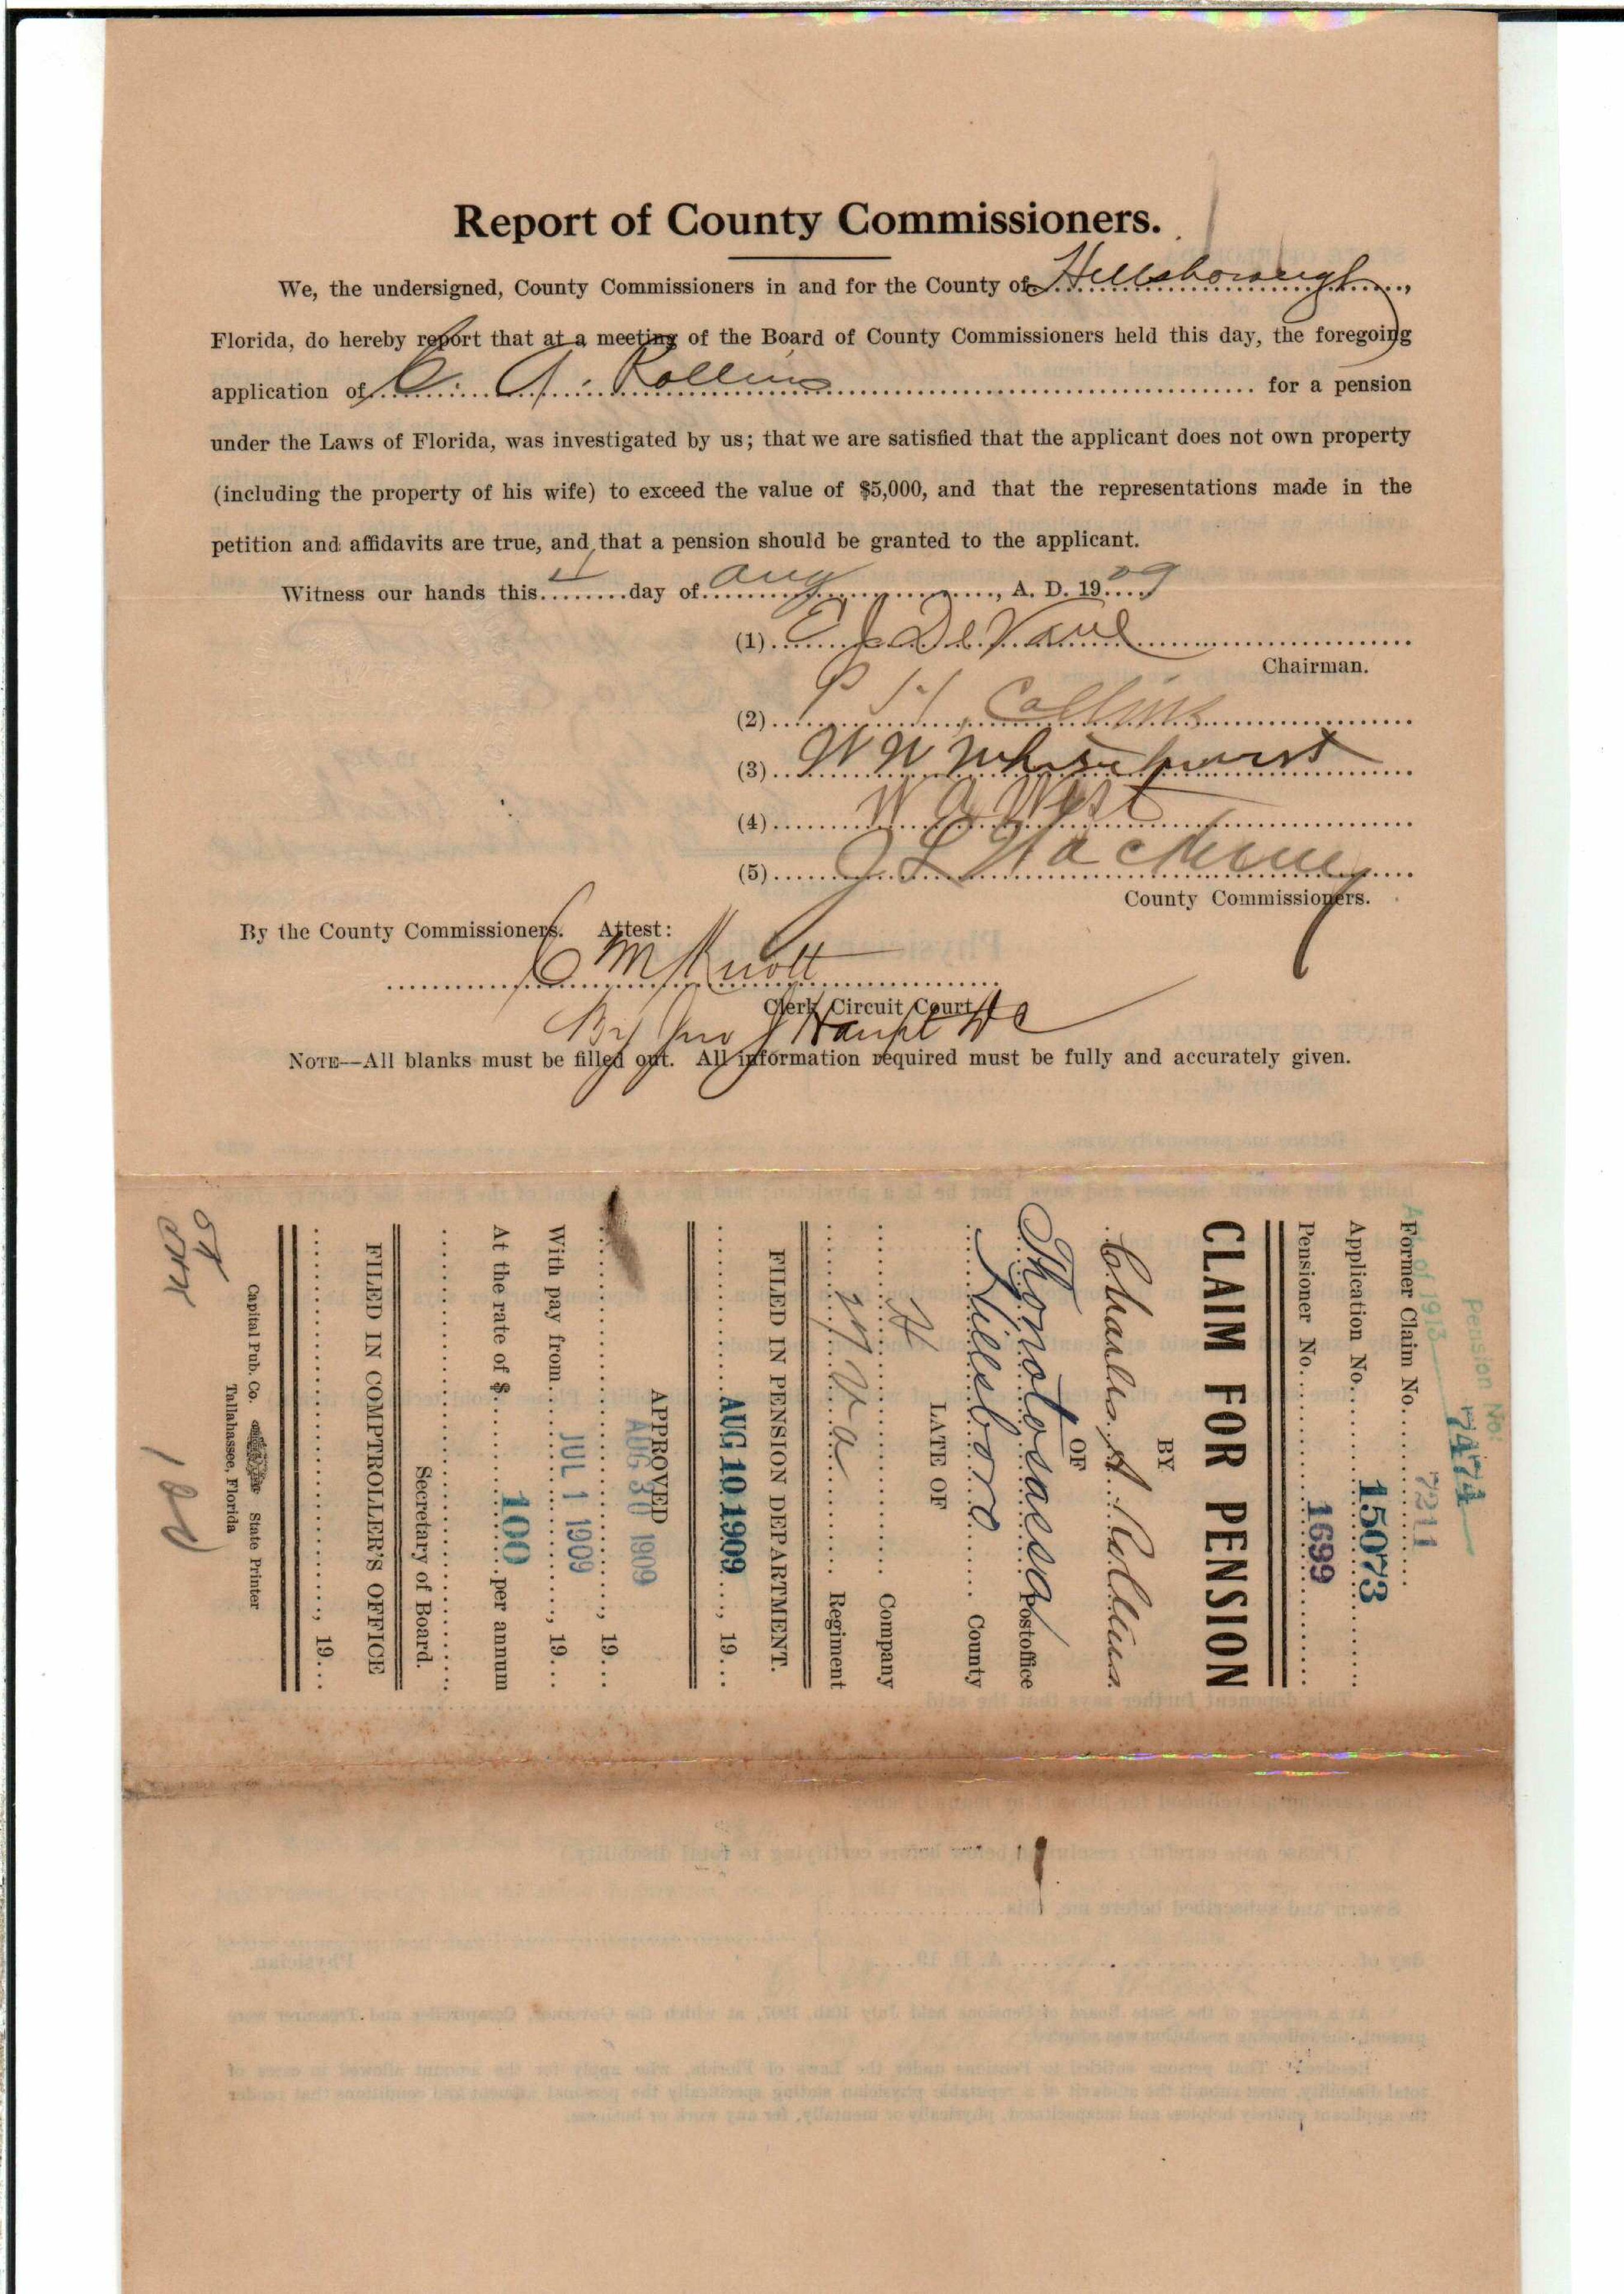 Report of County Commissioners.
We, the undersigned, County Commissioners in and for the County of Hillsborough,
Florida, do hereby report that at a meeting of the Board of County Commissioners held this day, the foregoing
application of C. A. Rollins for a pension
under the Laws of Florida, was investigated by us; that we are satisfied that the applicant does not own property
(including the property of his wife) to exceed the value of $5,000, and that the representations made in the
petition and affidavits are true, and that a pension should be granted to the applicant.
Witness our hands this 4 day of Aug, A. D. 1909
(1) E J DeVane
Chairman.
(2) P H Collins
(3) W W Whitehurst
(4) W A West
(5) J L
County Commissioners.
By the County Commissioners. Attest:
C M Knott
Clerk Circuit Court
By Jno J Haupt DC
NOTE—All blanks must be filled out. All information required must be fully and accurately given.
Pension No.
7474
of 1913
7211
Former Claim No.
Application No. 15073
Pensioner No. 1699
CLAIM FOR PENSION
BY
Charles A. Rollins
OF
Thonotosassa Postoffice
Hillsboro County
LATE OF
H Company
Va Regiment
FILED IN PENSION DEPARTMENT.
AUG 10 1909, 19
APPROVED
AUG 30 1909, 19
With pay from JUL 1 1909, 19
At the rate of $ 100 per annum
Secretary of Board.
FILED IN COMPTROLLER'S OFFICE
, 19
Capital Pub. Co. State Printer
Tallahassee, Florida
OK